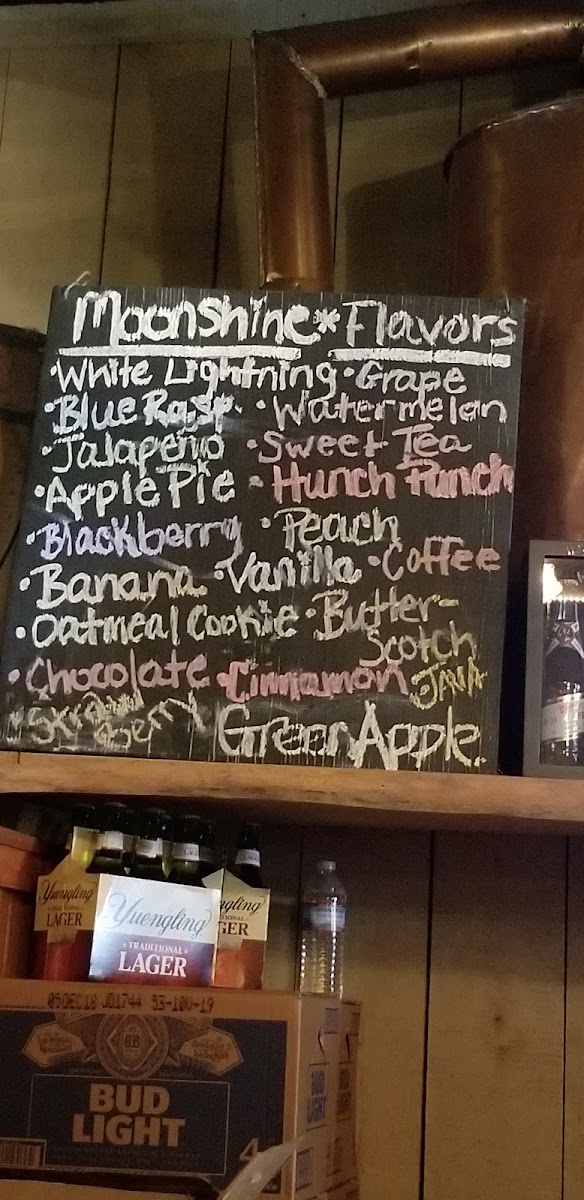 Moonshine * Flavors
• White Lightning • Grape
• Blue Rasp. • Watermelon
• Jalapeño • Sweet Tea
• Apple Pie • Hunch Punch
• Blackberry • Peach
• Banana • Vanilla • Coffee
• Oatmeal Cookie • Butter-
Scotch
• Chocolate • Cinnamon JAVA
• Strawberry Green Apple.
Yuengling
LAGER
Yuengling
TRADITIONAL
LAGER
ngling
IONAL
GER
05DEC18 JD1744 53-100-19
BUD
LIGHT
4
BUD
LIGHT